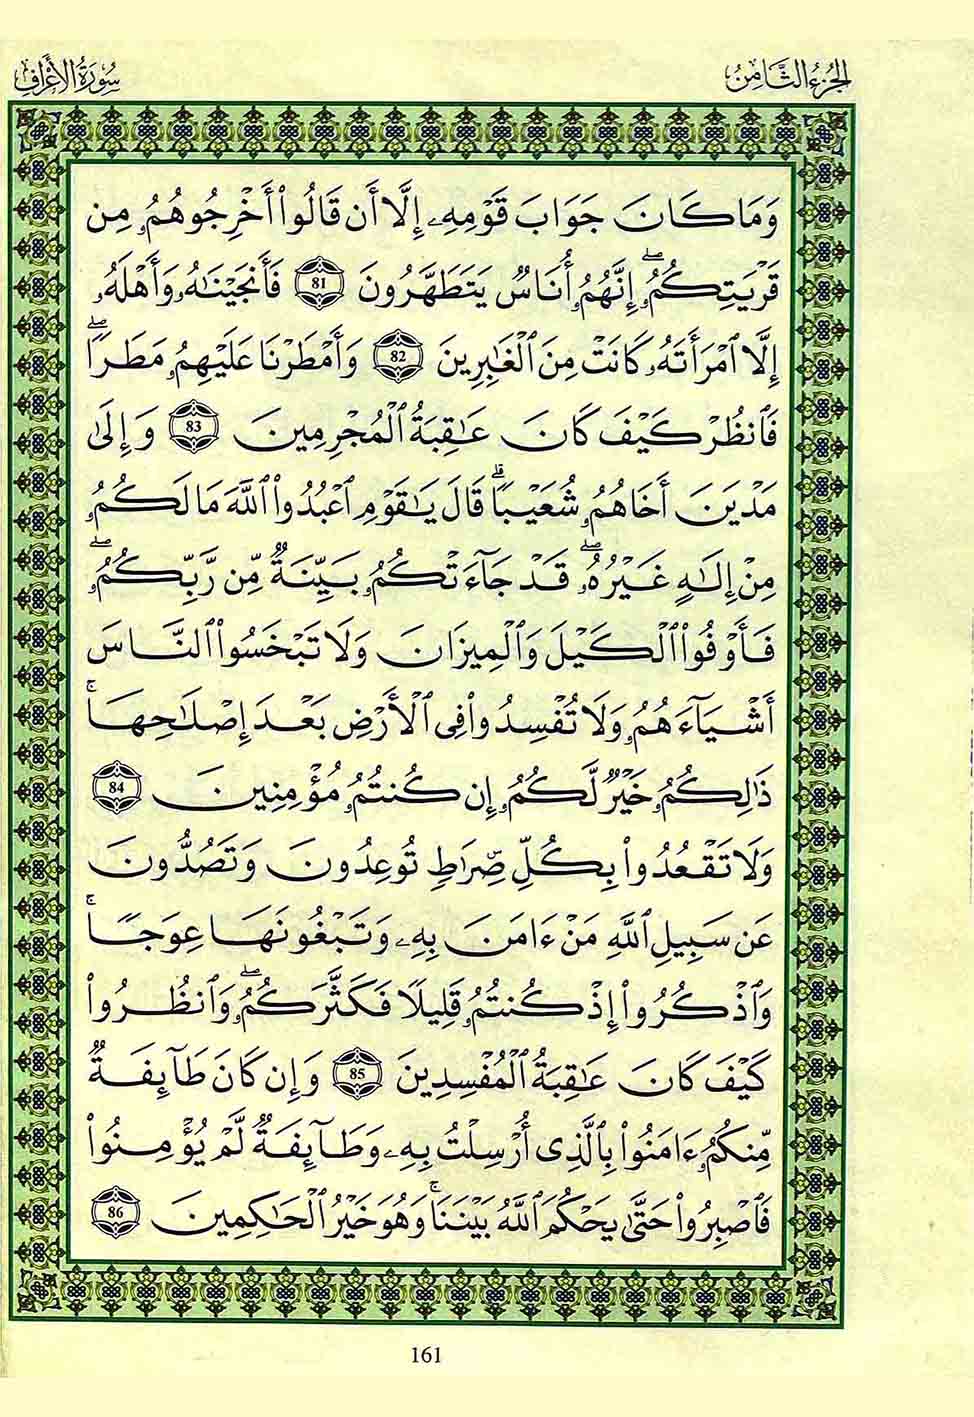 الجزء الثامن
سورة الأعراف
وَمَا كَانَ جَوَابَ قَوْمِهِۦ إِلَّا أَن قَالُوا۟ أَخْرِجُوهُمُۥ مِن
قَرْيَتِكُمُۥۖ إِنَّهُمُۥ أُنَاسٌ يَتَطَهَّرُونَ 81 فَأَنجَيْنَٰهُۥ وَأَهْلَهُۥ
إِلَّا ٱمْرَأَتَهُۥ كَانَتْ مِنَ ٱلْغَٰبِرِينَ 82 وَأَمْطَرْنَا عَلَيْهِمُۥ مَطَرًاۖ
فَٱنظُرْ كَيْفَ كَانَ عَٰقِبَةُ ٱلْمُجْرِمِينَ 83 وَإِلَىٰ
مَدْيَنَ أَخَاهُمُۥ شُعَيْبًاۗ قَالَ يَٰقَوْمِ ٱعْبُدُوا۟ ٱللَّهَ مَا لَكُمُۥ
مِنْ إِلَٰهٍ غَيْرُهُۥۖ قَدْ جَآءَتْكُمُۥ بَيِّنَةٌ مِّن رَّبِّكُمُۥۖ
فَأَوْفُوا۟ ٱلْكَيْلَ وَٱلْمِيزَانَ وَلَا تَبْخَسُوا۟ ٱلنَّاسَ
أَشْيَآءَهُمُۥ وَلَا تُفْسِدُوا۟ فِى ٱلْأَرْضِ بَعْدَ إِصْلَٰحِهَاۚ
ذَٰلِكُمُۥ خَيْرٌ لَّكُمُۥ إِن كُنتُمُۥ مُؤْمِنِينَ 84
وَلَا تَقْعُدُوا۟ بِكُلِّ صِّرَاطٍ تُوعِدُونَ وَتَصُدُّونَ
عَن سَبِيلِ ٱللَّهِ مَنْ ءَامَنَ بِهِۦ وَتَبْغُونَهَا عِوَجًاۚ
وَٱذْكُرُوا۟ إِذْ كُنتُمُۥ قَلِيلًا فَكَثَّرَكُمُۥۖ وَٱنظُرُوا۟
كَيْفَ كَانَ عَٰقِبَةُ ٱلْمُفْسِدِينَ 85 وَإِن كَانَ طَآئِفَةٌ
مِّنكُمُۥ ءَامَنُوا۟ بِٱلَّذِى أُرْسِلْتُ بِهِۦ وَطَآئِفَةٌ لَّمْ يُؤْمِنُوا۟
فَٱصْبِرُوا۟ حَتَّىٰ يَحْكُمَ ٱللَّهُ بَيْنَنَاۚ وَهُوَ خَيْرُ ٱلْحَٰكِمِينَ 86
161